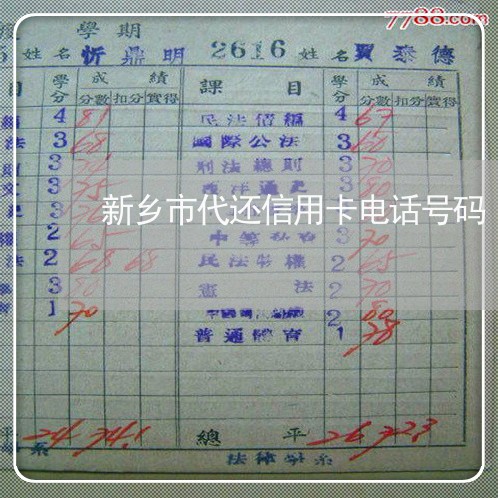 7788.com
學期
姓名 忻鼎明 2616 姓名 賈泰德
目 學分 成績 課目 學分 成績
分數 扣分 實得 分數 扣分 實得
4 81 民法債編 4 67
法 3 68 國際公法 3 60
3 刑法總則 3 70
3 75 西洋通史 3 80
新乡市代还信用卡电话号码
2 65 3 70
法 2 68 68 民法物權 2 65
3 80 憲法 2 70
1 70 2 80
普通體育 1 78
平 24 74.1 總平 26 72.3
系 法律學系